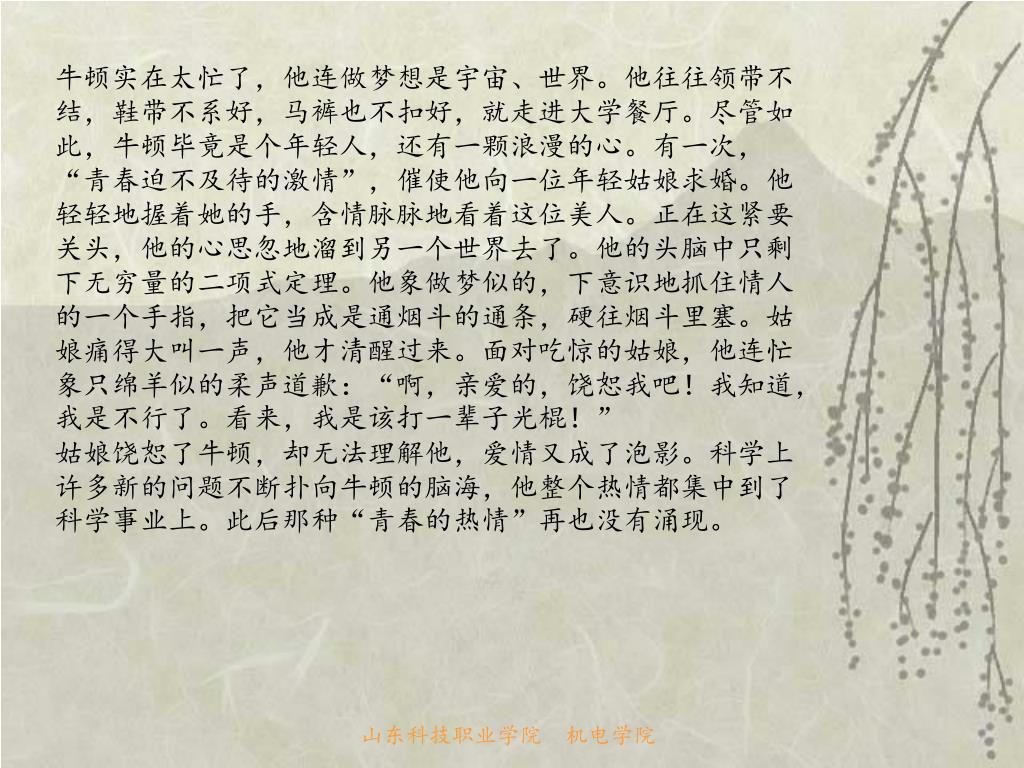 牛顿实在太忙了，他连做梦想是宇宙、世界。他往往领带不
结，鞋带不系好，马裤也不扣好，就走进大学餐厅。尽管如
此，牛顿毕竟是个年轻人，还有一颗浪漫的心。有一次，
“青春迫不及待的激情”，催使他向一位年轻姑娘求婚。他
轻轻地握着她的手，含情脉脉地看着这位美人。正在这紧要
关头，他的心思忽地溜到另一个世界去了。他的头脑中只剩
下无穷量的二项式定理。他象做梦似的，下意识地抓住情人
的一个手指，把它当成是通烟斗的通条，硬往烟斗里塞。姑
娘痛得大叫一声，他才清醒过来。面对吃惊的姑娘，他连忙
象只绵羊似的柔声道歉：“啊，亲爱的，饶恕我吧！我知道，
我是不行了。看来，我是该打一辈子光棍！”
姑娘饶恕了牛顿，却无法理解他，爱情又成了泡影。科学上
许多新的问题不断扑向牛顿的脑海，他整个热情都集中到了
科学事业上。此后那种“青春的热情”再也没有涌现。
山东科技职业学院 机电学院